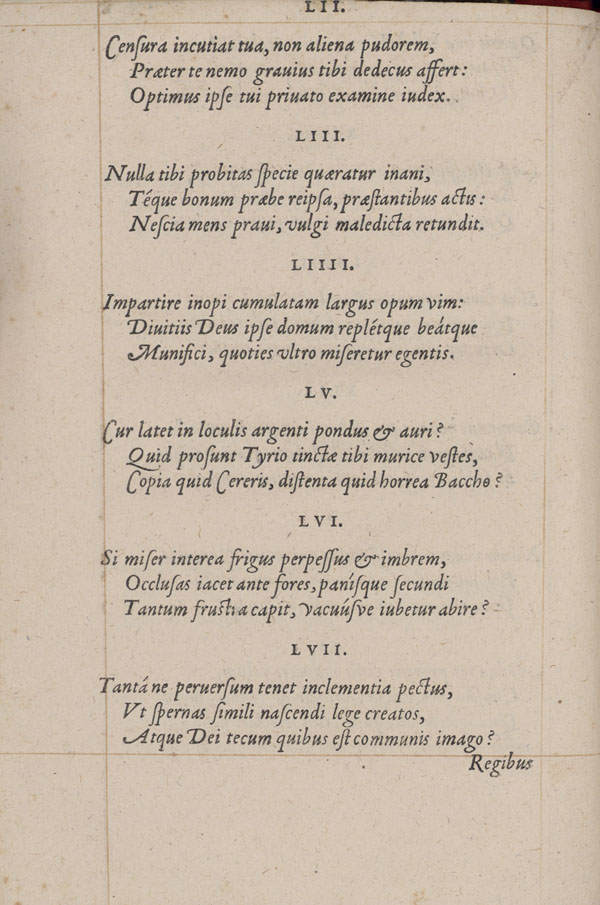 LII.
Cenſura incutiat tua, non aliena pudorem,
Præter te nemo grauius tibi dedecus affert:
Optimus ipſe tui priuato examine iudex.
LIII.
Nulla tibi probitas ſpecie quæratur inani,
Téque bonum præbe reipſa, præſtantibus actis:
Neſcia mens praui, vulgi maledicta retundit.
LIIII.
Impartire inopi cumulatam largus opum vim:
Diuitiis Deus ipſe domum replétque beátque
Munifici, quoties vltro miſeretur egentis.
LV.
Cur latet in loculis argenti pondus & auri?
Quid proſunt Tyrio tinctæ tibi murice veſtes,
Copia quid Cereris, diſtenta quid horrea Baccho?
LVI.
Si miſer interea frigus perpeſſus & imbrem,
Occluſas iacet ante fores, paníſque ſecundi
Tantum fruſtra capit, vacuúſve iubetur abire?
LVII.
Tantá ne peruerſum tenet inclementia pectus,
Vt ſpernas ſimili naſcendi lege creatos,
Atque Dei tecum quibus eſt communis imago?
Regibus